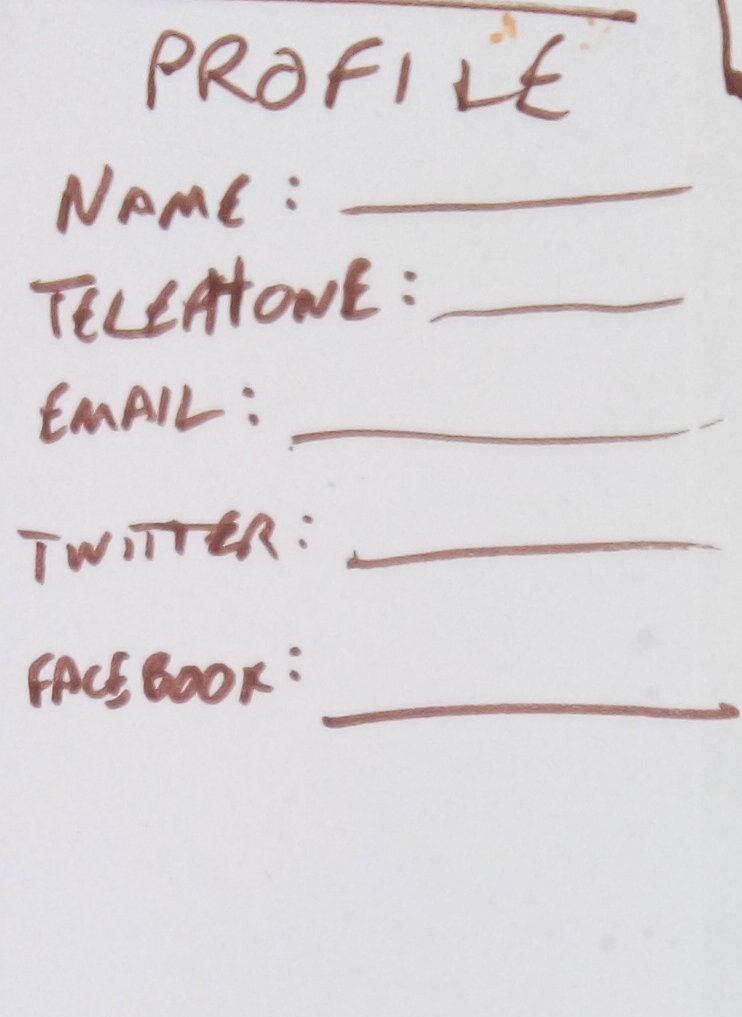 PROFILE
NAME: ________
TELEPHONE: ________
EMAIL: ________
TWITTER: ________
FACEBOOK: ________